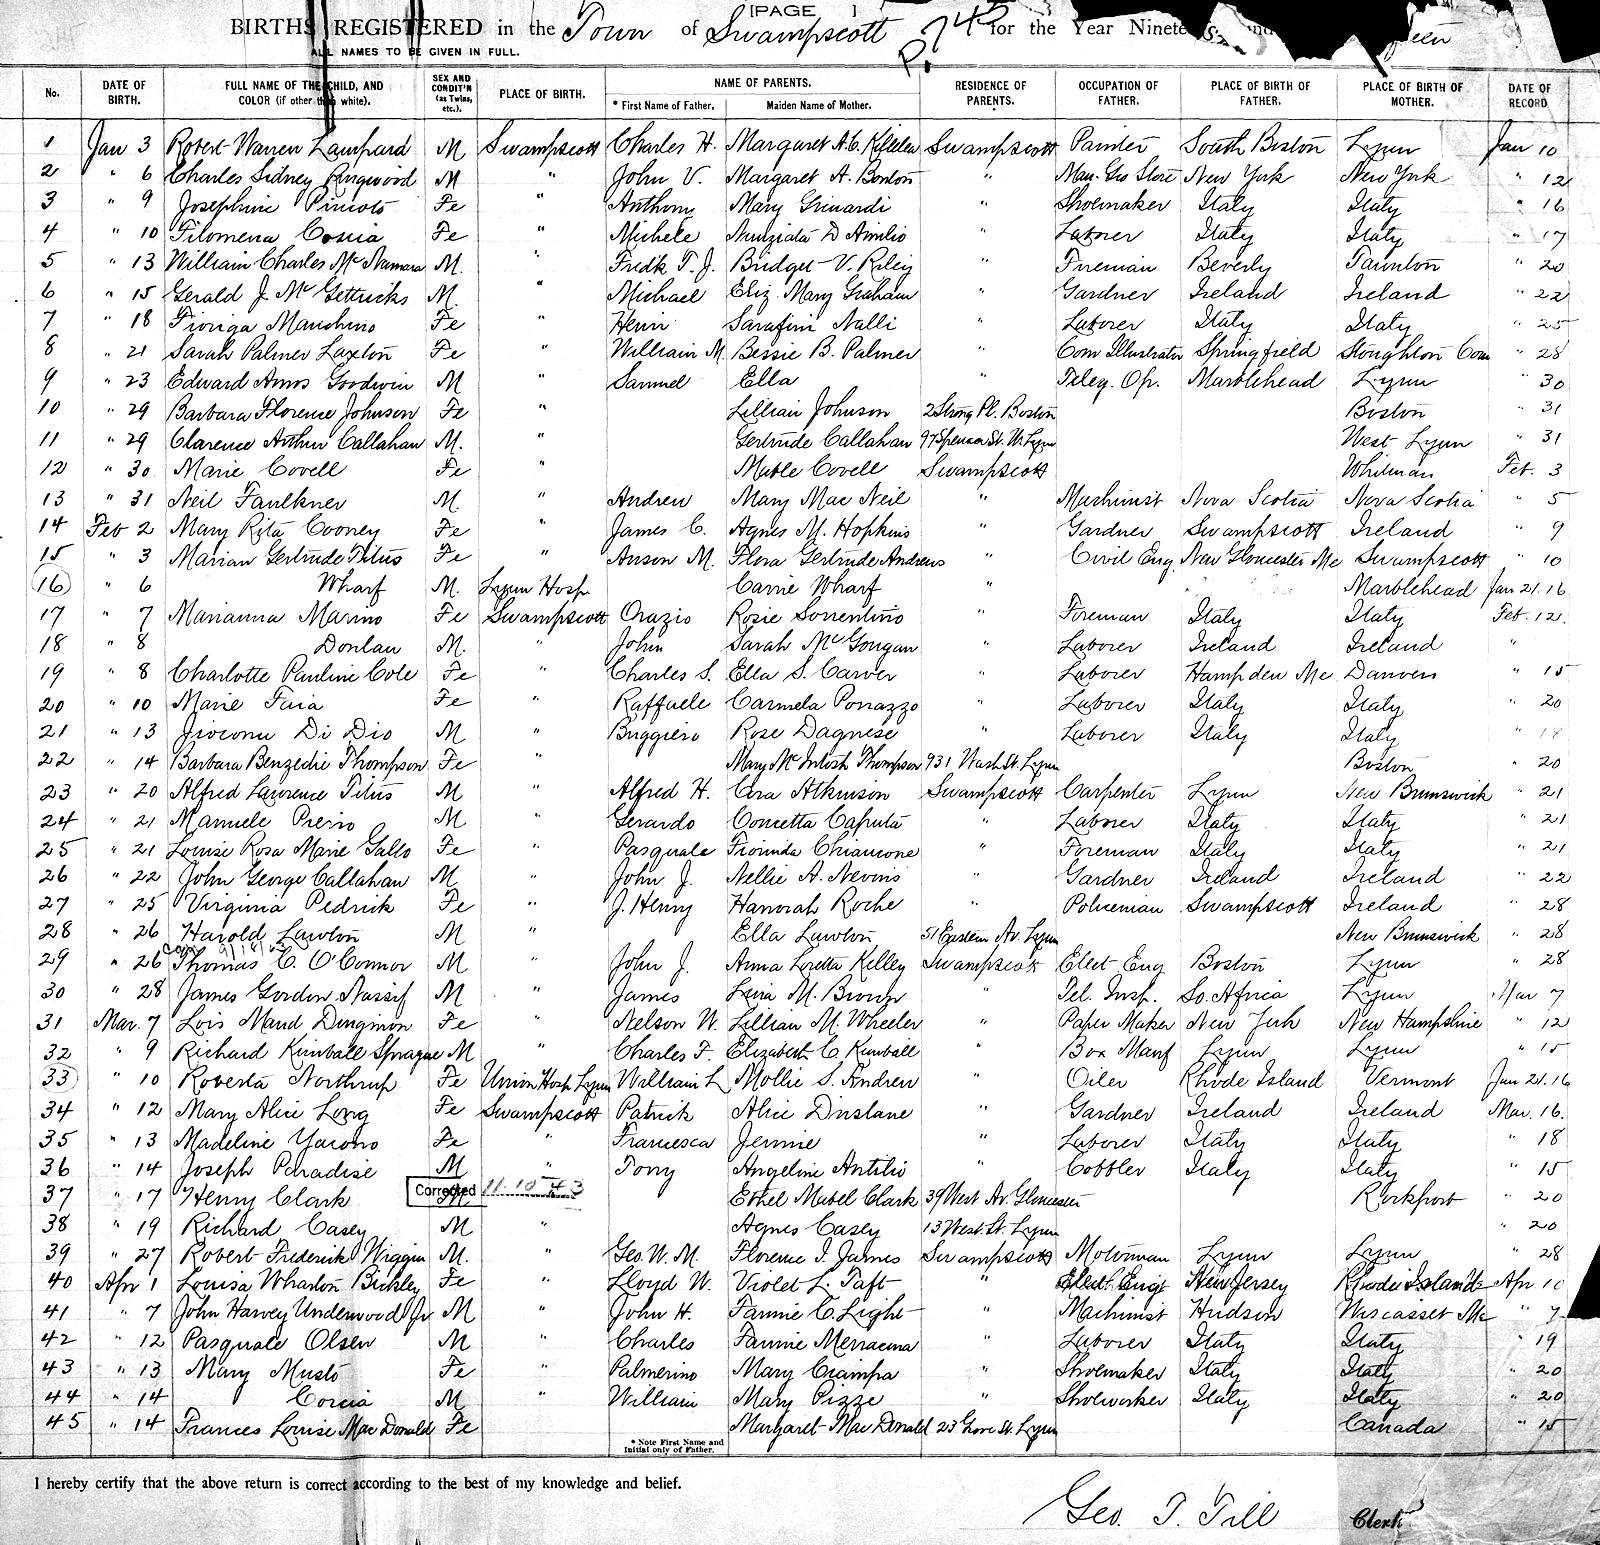 [PAGE ]
BIRTHS REGISTERED in the Town of Swampscott for the Year Ninete
P. 74
ALL NAMES TO BE GIVEN IN FULL.
No. DATE OF BIRTH. FULL NAME OF THE CHILD, AND COLOR (if other than white). SEX AND CONDIT'N (as Twins, etc.). PLACE OF BIRTH. NAME OF PARENTS. * First Name of Father. Maiden Name of Mother. RESIDENCE OF PARENTS. OCCUPATION OF FATHER. PLACE OF BIRTH OF FATHER. PLACE OF BIRTH OF MOTHER. DATE OF RECORD
1 Jan 3 Robert Warren Lampard M Swampscott Charles H. Margaret A.C. Swampscott Painter South Boston Lynn Jan 10
2 " 6 Charles Sidney Ringwood M " John V. Margaret A. Boston " Man. Gro Store New York New York " 12
3 " 9 Josephine Fe " Anthony Mary Grinardi " Shoemaker Italy Italy " 16
4 " 10 Filomena Coscia Fe " Michele Nunziata D Amilio " Laborer Italy Italy " 17
5 " 13 William Charles Mc Namara M. " Fredk T. J. Bridget V. Riley " Fireman Beverly Taunton " 20
6 " 15 Gerald J. Mc Gettricks M. " Michael Eliz Mary Graham " Gardner Ireland Ireland " 22
7 " 18 Fioriga Manchino Fe " Henri Sarafini Nalli " Laborer Italy Italy " 25
8 " 21 Sarah Palmer Laxton Fe " William M. Bessie B. Palmer " Com Illustrator Springfield Stoughton Con " 28
9 " 23 Edward Amos Goodwin M " Samuel Ella " Teleg. Op. Marblehead Lynn " 30
10 " 29 Barbara Florence Johnson Fe " Lillian Johnson 2 Strong Pl. Boston Boston " 31
11 " 29 Clarence Arthur Callahan M. " Gertrude Callahan 97 Spencer St. W. Lynn West Lynn " 31
12 " 30 Marie Covell Fe " Mable Covell Swampscott Whitman Feb. 3
13 " 31 Neil Faulkner M. " Andrew Mary Mac Neil " Machinist Nova Scotia Nova Scotia " 5
14 Feb 2 Mary Rita Cooney Fe " James C. Agnes M. Hopkins " Gardner Swampscott Ireland " 9
15 " 3 Marian Gertrude Titus Fe " Anson M. Flora Gertrude Andrews " Civil Eng. New Gloucester Me Swampscott " 10
16 " 6 Wharf M. Lynn Hosp Carrie Wharf " Marblehead Jan 21. 16
17 " 7 Marianna Marino Fe Swampscott Orazio Rosie Sorrentino " Foreman Italy Italy Feb. 12.
18 " 8 Donlan M. " John Sarah McGougan " Laborer Ireland Ireland "
19 " 8 Charlotte Pauline Cole Fe " Charles S. Ella S. Carver " Laborer Hampden Me Danvers " 15
20 " 10 Marie Faia Fe " Raffaele Carmela Porrazzo " Laborer Italy Italy " 20
21 " 13 Di Dio M " Buggiero Rose Dagnese " Laborer Italy Italy "
22 " 14 Barbara Benzedie Thompson Fe " Mary McIntosh Thompson 931 Wash St. Lynn Boston " 20
23 " 20 Alfred Lawrence Titus M " Alfred H. Cora Atkinson Swampscott Carpenter Lynn New Brunswick " 21
24 " 21 Manuele M " Gerardo Concetta Caputa " Laborer Italy Italy " 21
25 " 21 Louise Rosa Marie Gallo Fe " Pasquale Fiorinda Chiancone " Foreman Italy Italy " 21
26 " 22 John George Callahan M " John J. Nellie A. Nevins " Gardner Ireland Ireland " 22
27 " 25 Virginia Pedrick Fe " J. Henry Hanorah Roche " Policeman Swampscott Ireland " 28
28 " 26 Harold Lawton M " Ella Lawton 51 Eastern Av. Lynn New Brunswick " 28
29 " 26 Thomas C. O'Connor M " John J. Anna Loretta Kelley Swampscott Elect Eng Boston Lynn " 28
30 " 28 James Gordon Nassif M " James Lena M. Brown " Tel. Insp. So. Africa Lynn Mar 7
31 Mar. 7 Lois Maud Dingman Fe " Nelson W. Lillian M. Wheeler " Paper Maker New York New Hampshire " 12
32 " 9 Richard Kimball Sprague M " Charles F. Elizabeth C. Kimball " Box Manf Lynn Lynn " 15
33 " 10 Roberta Northrup Fe Union Hosp Lynn William L Mollie S. Andrew " Oiler Rhode Island Vermont Jan 21. 16
34 " 12 Mary Alice Long Fe Swampscott Patrick Alice Dinslane " Gardner Ireland Ireland Mar. 16.
35 " 13 Madeline Yacono Fe " Francesca Jennie " Laborer Italy Italy " 18
36 " 14 Joseph Paradise M " Tony Angeline Antilio " Cobbler Italy Italy " 15
37 " 17 Henry Clark Corrected 11-10-43 Ethel Mabel Clark 39 West Av. Gloucester Rockport " 20
38 " 19 Richard Casey M " Agnes Casey 13 West St. Lynn " 20
39 " 27 Robert Frederick Wiggin M. " Geo. W. M. Florence I. James Swampscott Motorman Lynn Lynn " 28
40 Apr 1 Louisa Wharton Bickley Fe " Lloyd W. Violet L. Taft " Elect. Engr New Jersey Rhode Island Apr 10
41 " 7 John Harvey Underwood Jr M " John H. Fannie C. Light " Machinist Hudson Wiscasset Me " 7
42 " 12 Pasquale Olsen M " Charles Fannie Merracina " Laborer Italy Italy " 19
43 " 13 Mary Musto Fe " Palmerino Mary Ciampa " Shoemaker Italy Italy " 20
44 " 14 Corcia M " William Mary Pizze " Shoeworker Italy Italy " 20
45 " 14 Frances Louise MacDonald Fe Margaret MacDonald 23 Grove St. Lynn Canada " 15
* Note First Name and Initial only of Father.
I hereby certify that the above return is correct according to the best of my knowledge and belief.
Geo. T. Till Clerk